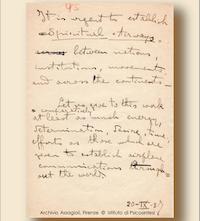 It is urgent to establish
"Spiritual Airways"
across between nations,
institutions, movements
and across the continents.
Let us give to this work
consecrated
at least as much energy,
determination, being, time
efforts as those which are
given to establish airplane
communications through-
out the world.
20-IX-
Archivio Assagioli, Firenze © Istituto di Psicosintesi